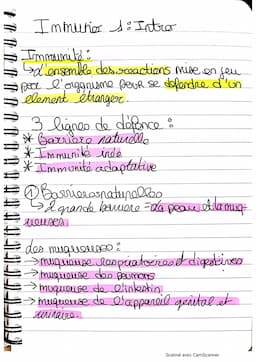 Immunior 1: Intro
Immunité:
↳ L'ensemble des reactions mise en jeu
par l'organisme pour se defendre d'un
element étranger.
3 lignes de défence:
* Barrière naturelle
* Immunité inée
* Immunité adaptative
① Barrières naturelles
↳ 2 grande barriere = La peau et la muq
ueuses
des muqueuses:
→ muqueuse respiratoires et digestives
→ muqueuse des poumons
→ muqueuse de l'intestin
→ muqueuse de l'appareil génital et
urinaire.
Scanné avec CamScanner